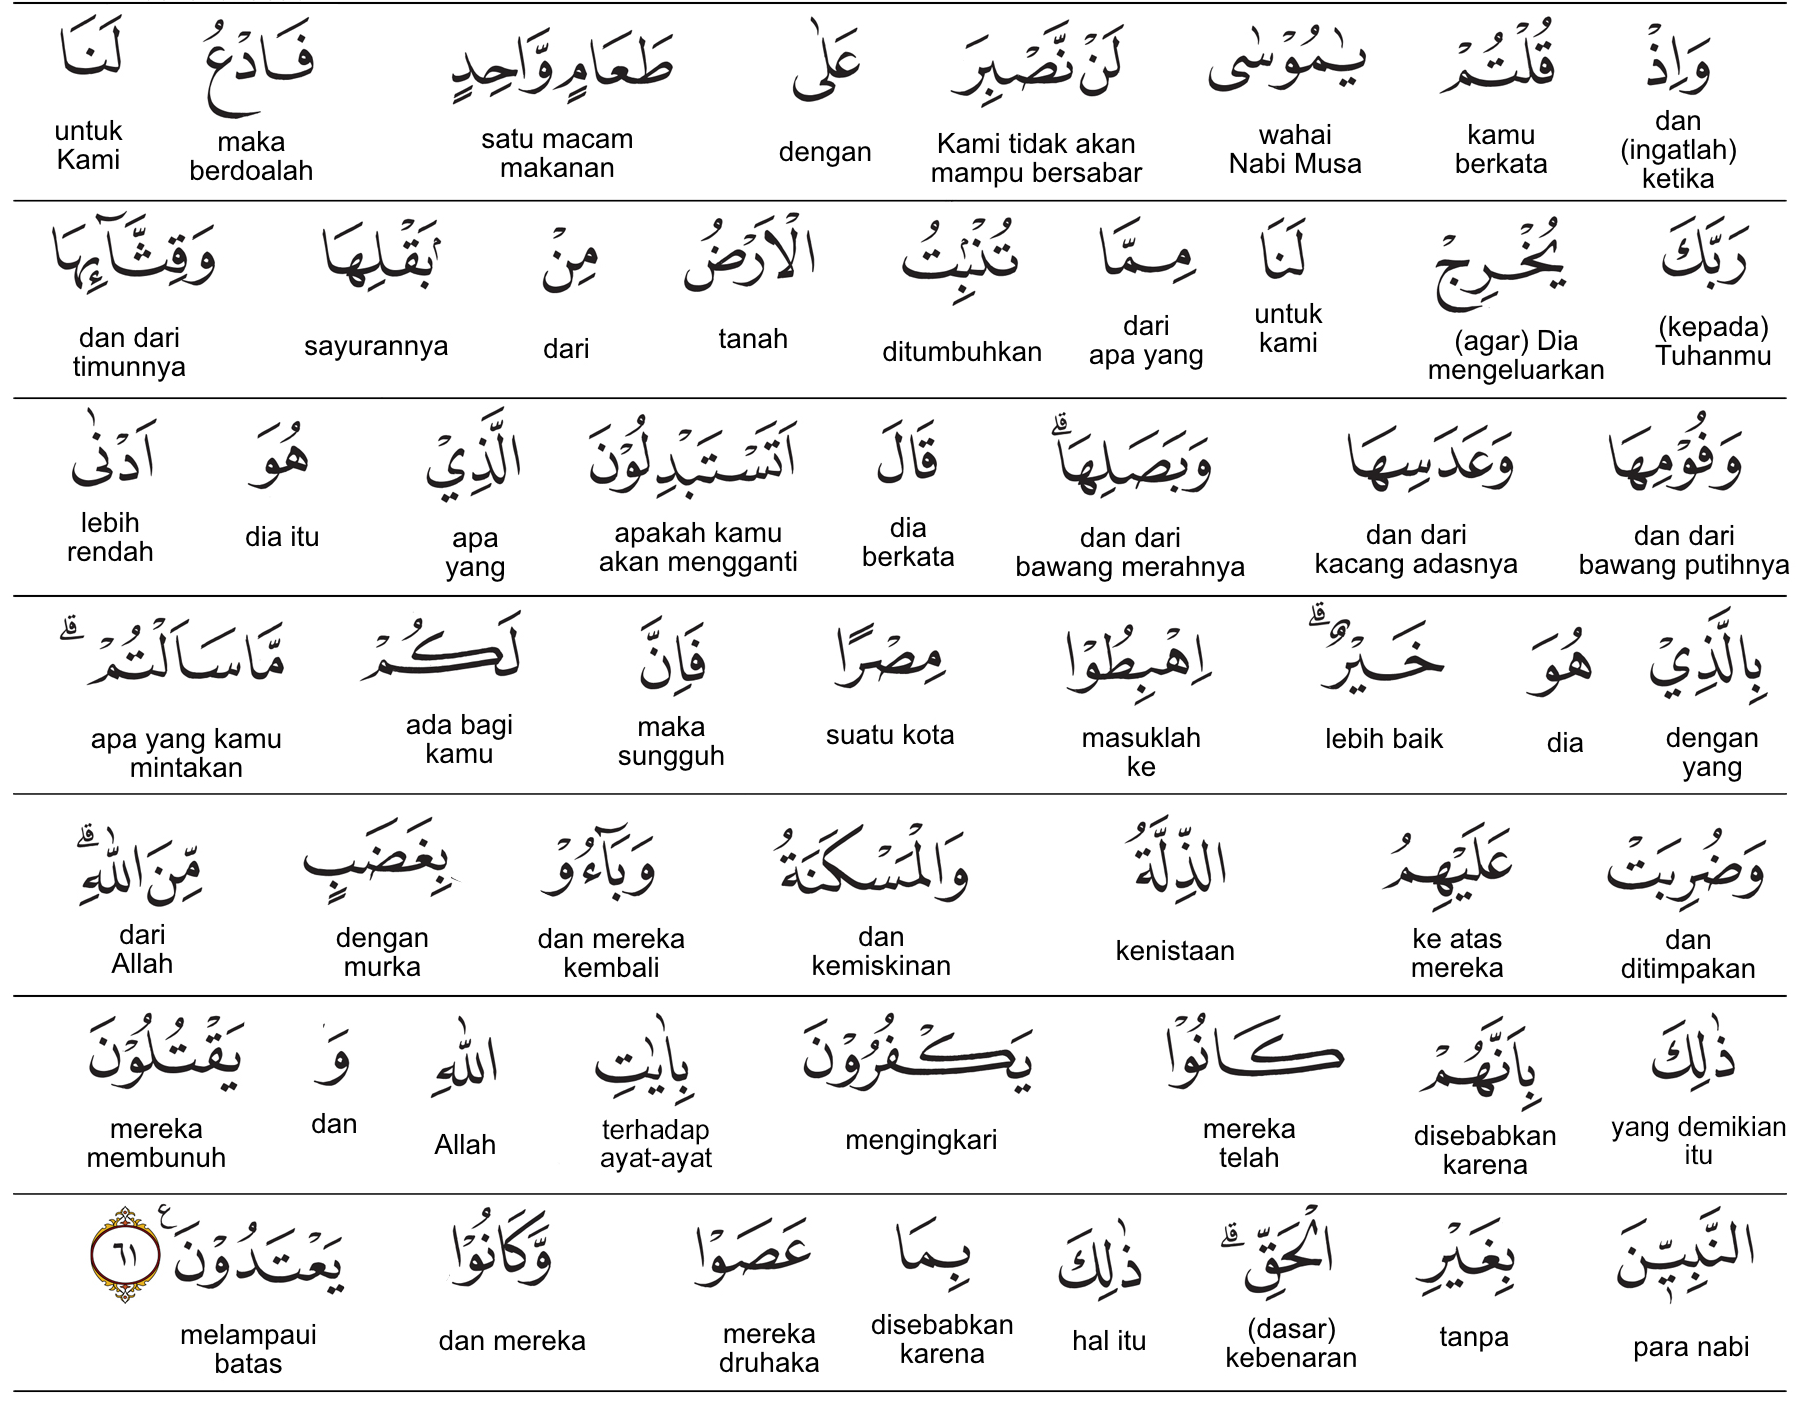 وَاِذْ قُلْتُمْ يٰمُوْسٰى لَنْ نَّصْبِرَ عَلٰى طَعَامٍ وَّاحِدٍ فَادْعُ لَنَا
dan (ingatlah) ketika kamu berkata wahai Nabi Musa Kami tidak akan mampu bersabar dengan satu macam makanan maka berdoalah untuk Kami
رَبَّكَ يُخْرِجْ لَنَا مِمَّا تُنْۢبِتُ الْاَرْضُ مِنْۢ بَقْلِهَا وَقِثَّاۤىِٕهَا
(kepada) Tuhanmu (agar) Dia mengeluarkan untuk kami dari apa yang ditumbuhkan tanah dari sayurannya dan dari timunnya
وَفُوْمِهَا وَعَدَسِهَا وَبَصَلِهَاۗ قَالَ اَتَسْتَبْدِلُوْنَ الَّذِيْ هُوَ اَدْنٰى
dan dari bawang putihnya dan dari kacang adasnya dan dari bawang merahnya dia berkata apakah kamu akan mengganti apa yang dia itu lebih rendah
بِالَّذِيْ هُوَ خَيْرٌۗ اِهْبِطُوْا مِصْرًا فَاِنَّ لَكُمْ مَّا سَاَلْتُمْۗ
dengan yang dia lebih baik masuklah ke suatu kota maka sungguh ada bagi kamu apa yang kamu mintakan
وَضُرِبَتْ عَلَيْهِمُ الذِّلَّةُ وَالْمَسْكَنَةُ وَبَاۤءُوْ بِغَضَبٍ مِّنَ اللّٰهِۗ
dan ditimpakan ke atas mereka kenistaan dan kemiskinan dan mereka kembali dengan murka dari Allah
ذٰلِكَ بِاَنَّهُمْ كَانُوْا يَكْفُرُوْنَ بِاٰيٰتِ اللّٰهِ وَ يَقْتُلُوْنَ
yang demikian itu disebabkan karena mereka telah mengingkari terhadap ayat-ayat Allah dan mereka membunuh
النَّبِيّٖنَ بِغَيْرِ الْحَقِّۗ ذٰلِكَ بِمَا عَصَوْا وَّكَانُوْا يَعْتَدُوْنَ ࣖ ٦١
para nabi tanpa (dasar) kebenaran hal itu disebabkan karena mereka druhaka dan mereka melampaui batas